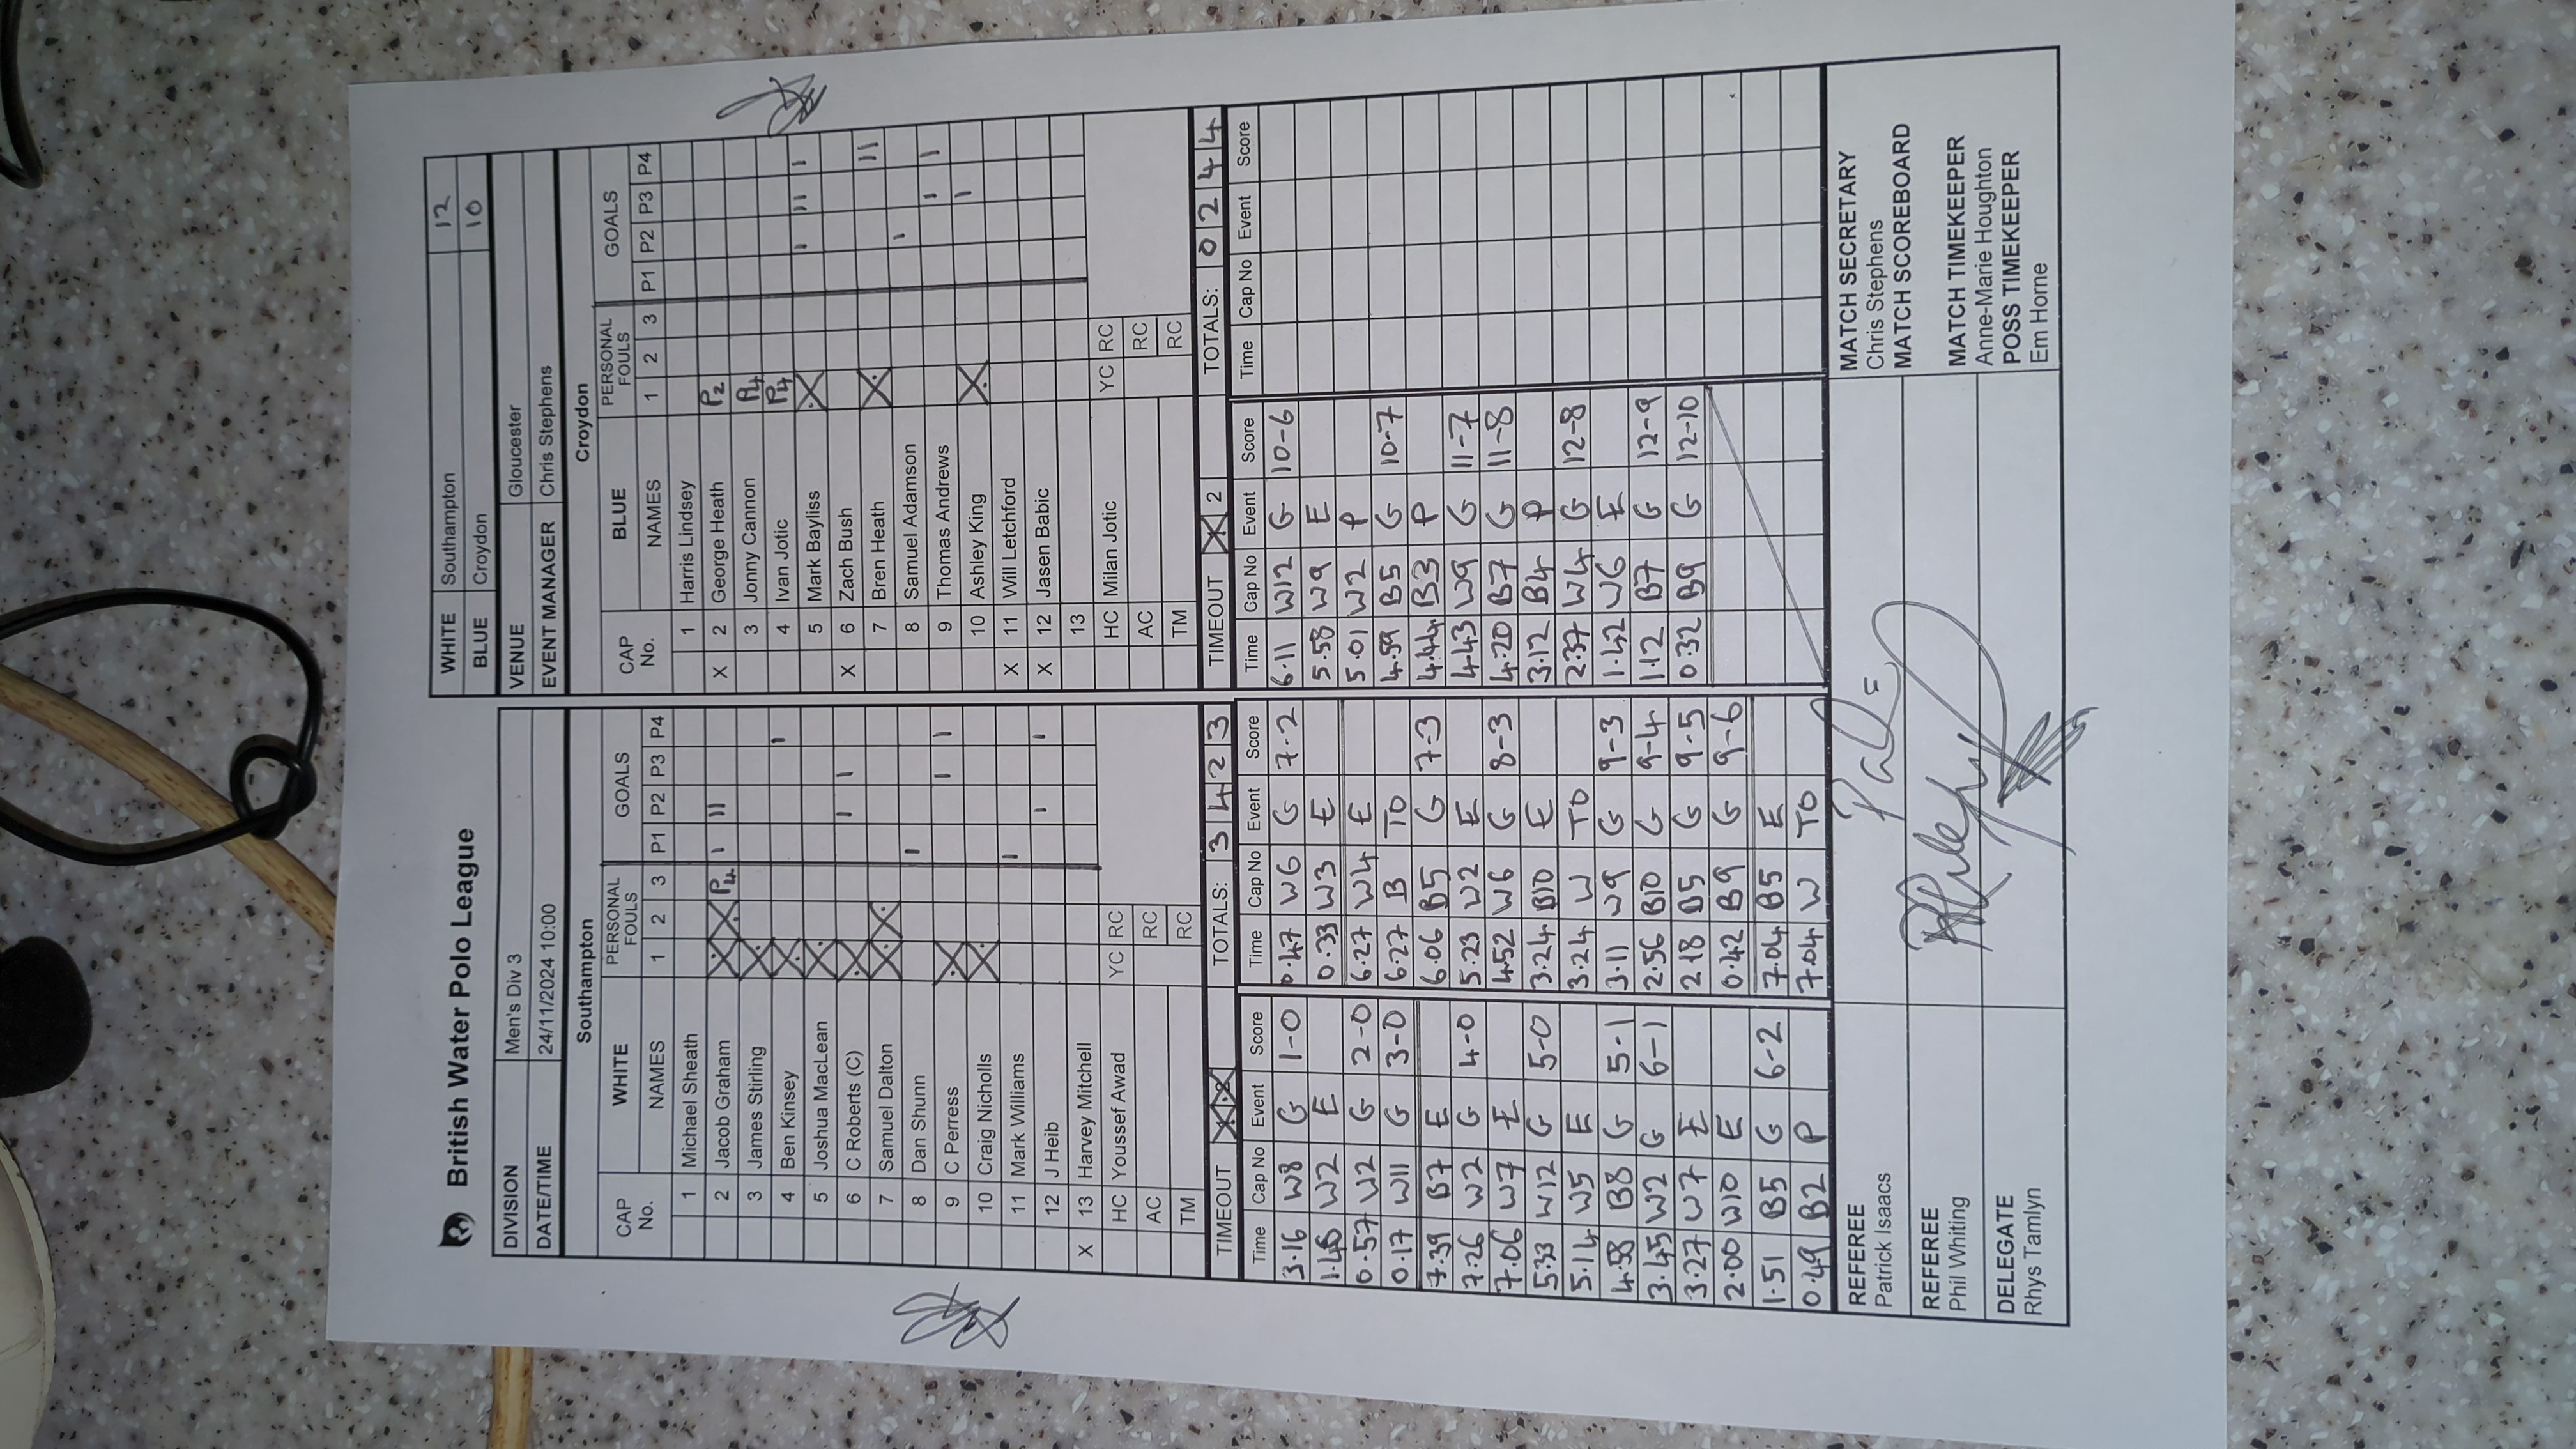 British Water Polo League
WHITE Southampton 12
BLUE Croydon 10
DIVISION Men's Div 3
DATE/TIME 24/11/2024 10:00
VENUE Gloucester
EVENT MANAGER Chris Stephens
Southampton
CAP No. WHITE NAMES PERSONAL FOULS 1 2 3 GOALS P1 P2 P3 P4
1 Michael Sheath
2 Jacob Graham X X P4 I II
3 James Stirling X
4 Ben Kinsey X I
5 Joshua MacLean X
6 C Roberts (C) X I I
7 Samuel Dalton X X
8 Dan Shunn I
9 C Perress X I I
10 Craig Nicholls X
11 Mark Williams I
12 J Heib I I
X 13 Harvey Mitchell
HC Youssef Awad YC RC
AC RC
TM RC
TIMEOUT X X TOTALS: 3 4 2 3
Croydon
CAP No. BLUE NAMES PERSONAL FOULS 1 2 3 GOALS P1 P2 P3 P4
1 Harris Lindsey
X 2 George Heath P2
3 Jonny Cannon P4
4 Ivan Jotic P4
5 Mark Bayliss X I II I
X 6 Zach Bush
7 Bren Heath X II
8 Samuel Adamson I
9 Thomas Andrews I I
10 Ashley King X I
X 11 Will Letchford
X 12 Jasen Babic
13
HC Milan Jotic YC RC
AC RC
TM RC
TIMEOUT X 2 TOTALS: 0 2 4 4
Time Cap No Event Score
3.16 W8 G 1-0
W2 E
0.57 W2 G 2-0
0.17 W11 G 3-0
7.39 B7 E
7.26 W2 G 4-0
7.06 W7 E
5.33 W12 G 5-0
5.14 W5 E
4.58 B8 G 5-1
3.45 W2 G 6-1
3.27 W7 E
2.00 W10 E
1.51 B5 G 6-2
0.49 B2 P
Time Cap No Event Score
0.47 W6 G 7-2
0.33 W3 E
6.27 W4 E
6.27 B TO
6.06 B5 G 7-3
5.23 W2 E
4.52 W6 G 8-3
3.24 B10 E
3.24 W TO
3.11 W9 G 9-3
2.56 B10 G 9-4
2.18 B5 G 9-5
0.42 B9 G 9-6
7.04 B5 E
7.04 W TO
Time Cap No Event Score
6.11 W12 G 10-6
5.58 W9 E
5.01 W2 P
4.59 B5 G 10-7
4.44 B3 P
4.43 W9 G 11-7
4.20 B7 G 11-8
3.12 B4 P
2.37 W4 G 12-8
1.42 W6 E
1.12 B7 G 12-9
0.32 B9 G 12-10
Time Cap No Event Score
REFEREE
Patrick Isaacs
REFEREE
Phil Whiting
DELEGATE
Rhys Tamlyn
MATCH SECRETARY
Chris Stephens
MATCH SCOREBOARD
MATCH TIMEKEEPER
Anne-Marie Houghton
POSS TIMEKEEPER
Em Horne